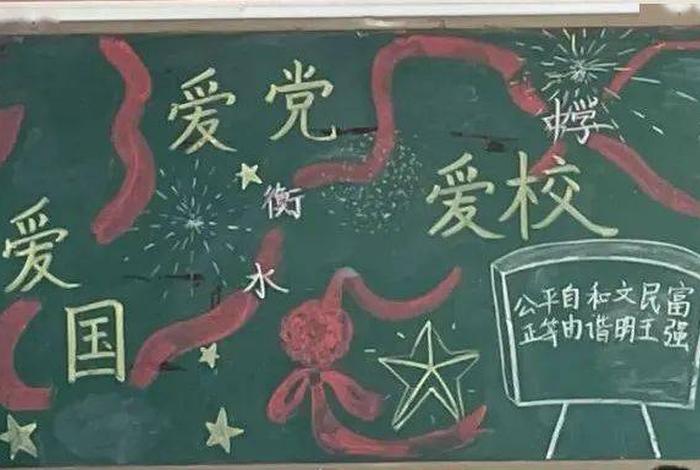 爱党
爱国
爱校
衡水
中学
富强
民主
文明
和谐
自由
平等
公正